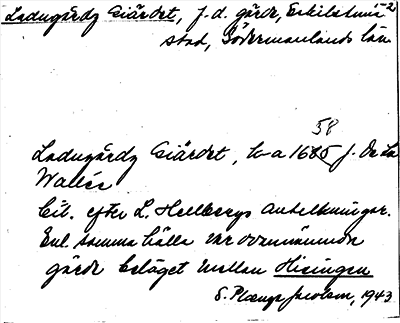 Ladugårdz Giärdet, f.d. gärde, Eskilstuna
stad, Södermanlands län
58
Ladugårdz Giärdet, ka 1685 f. De La
Vallée
Cit. efter L. Hellbergs anteckningar.
Enl. samma källa var ovannämnda
gärde beläget mellan Hisingen
S. Plænge Jacobson, 1943